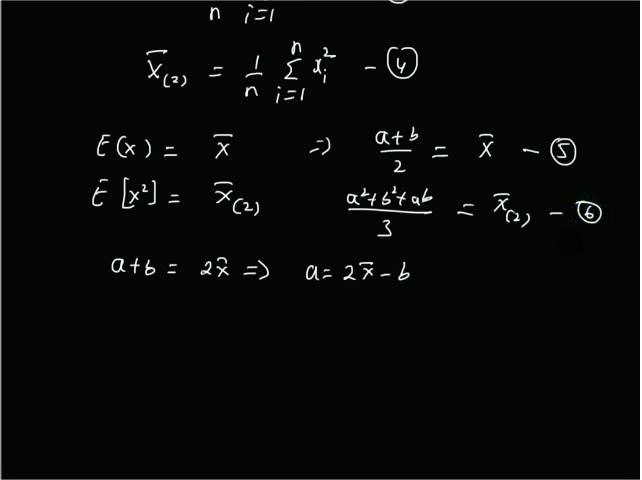 n i=1
X̄₍₂₎ = 1/n Σⁿᵢ₌₁ xᵢ² - ④
E(x) = x̄ ⇒ a+b/2 = x̄ - ⑤
E[x²] = x̄₍₂₎ a²+b²+ab/3 = x̄₍₂₎ - ⑥
a+b = 2x̄ ⇒ a = 2x̄ - b